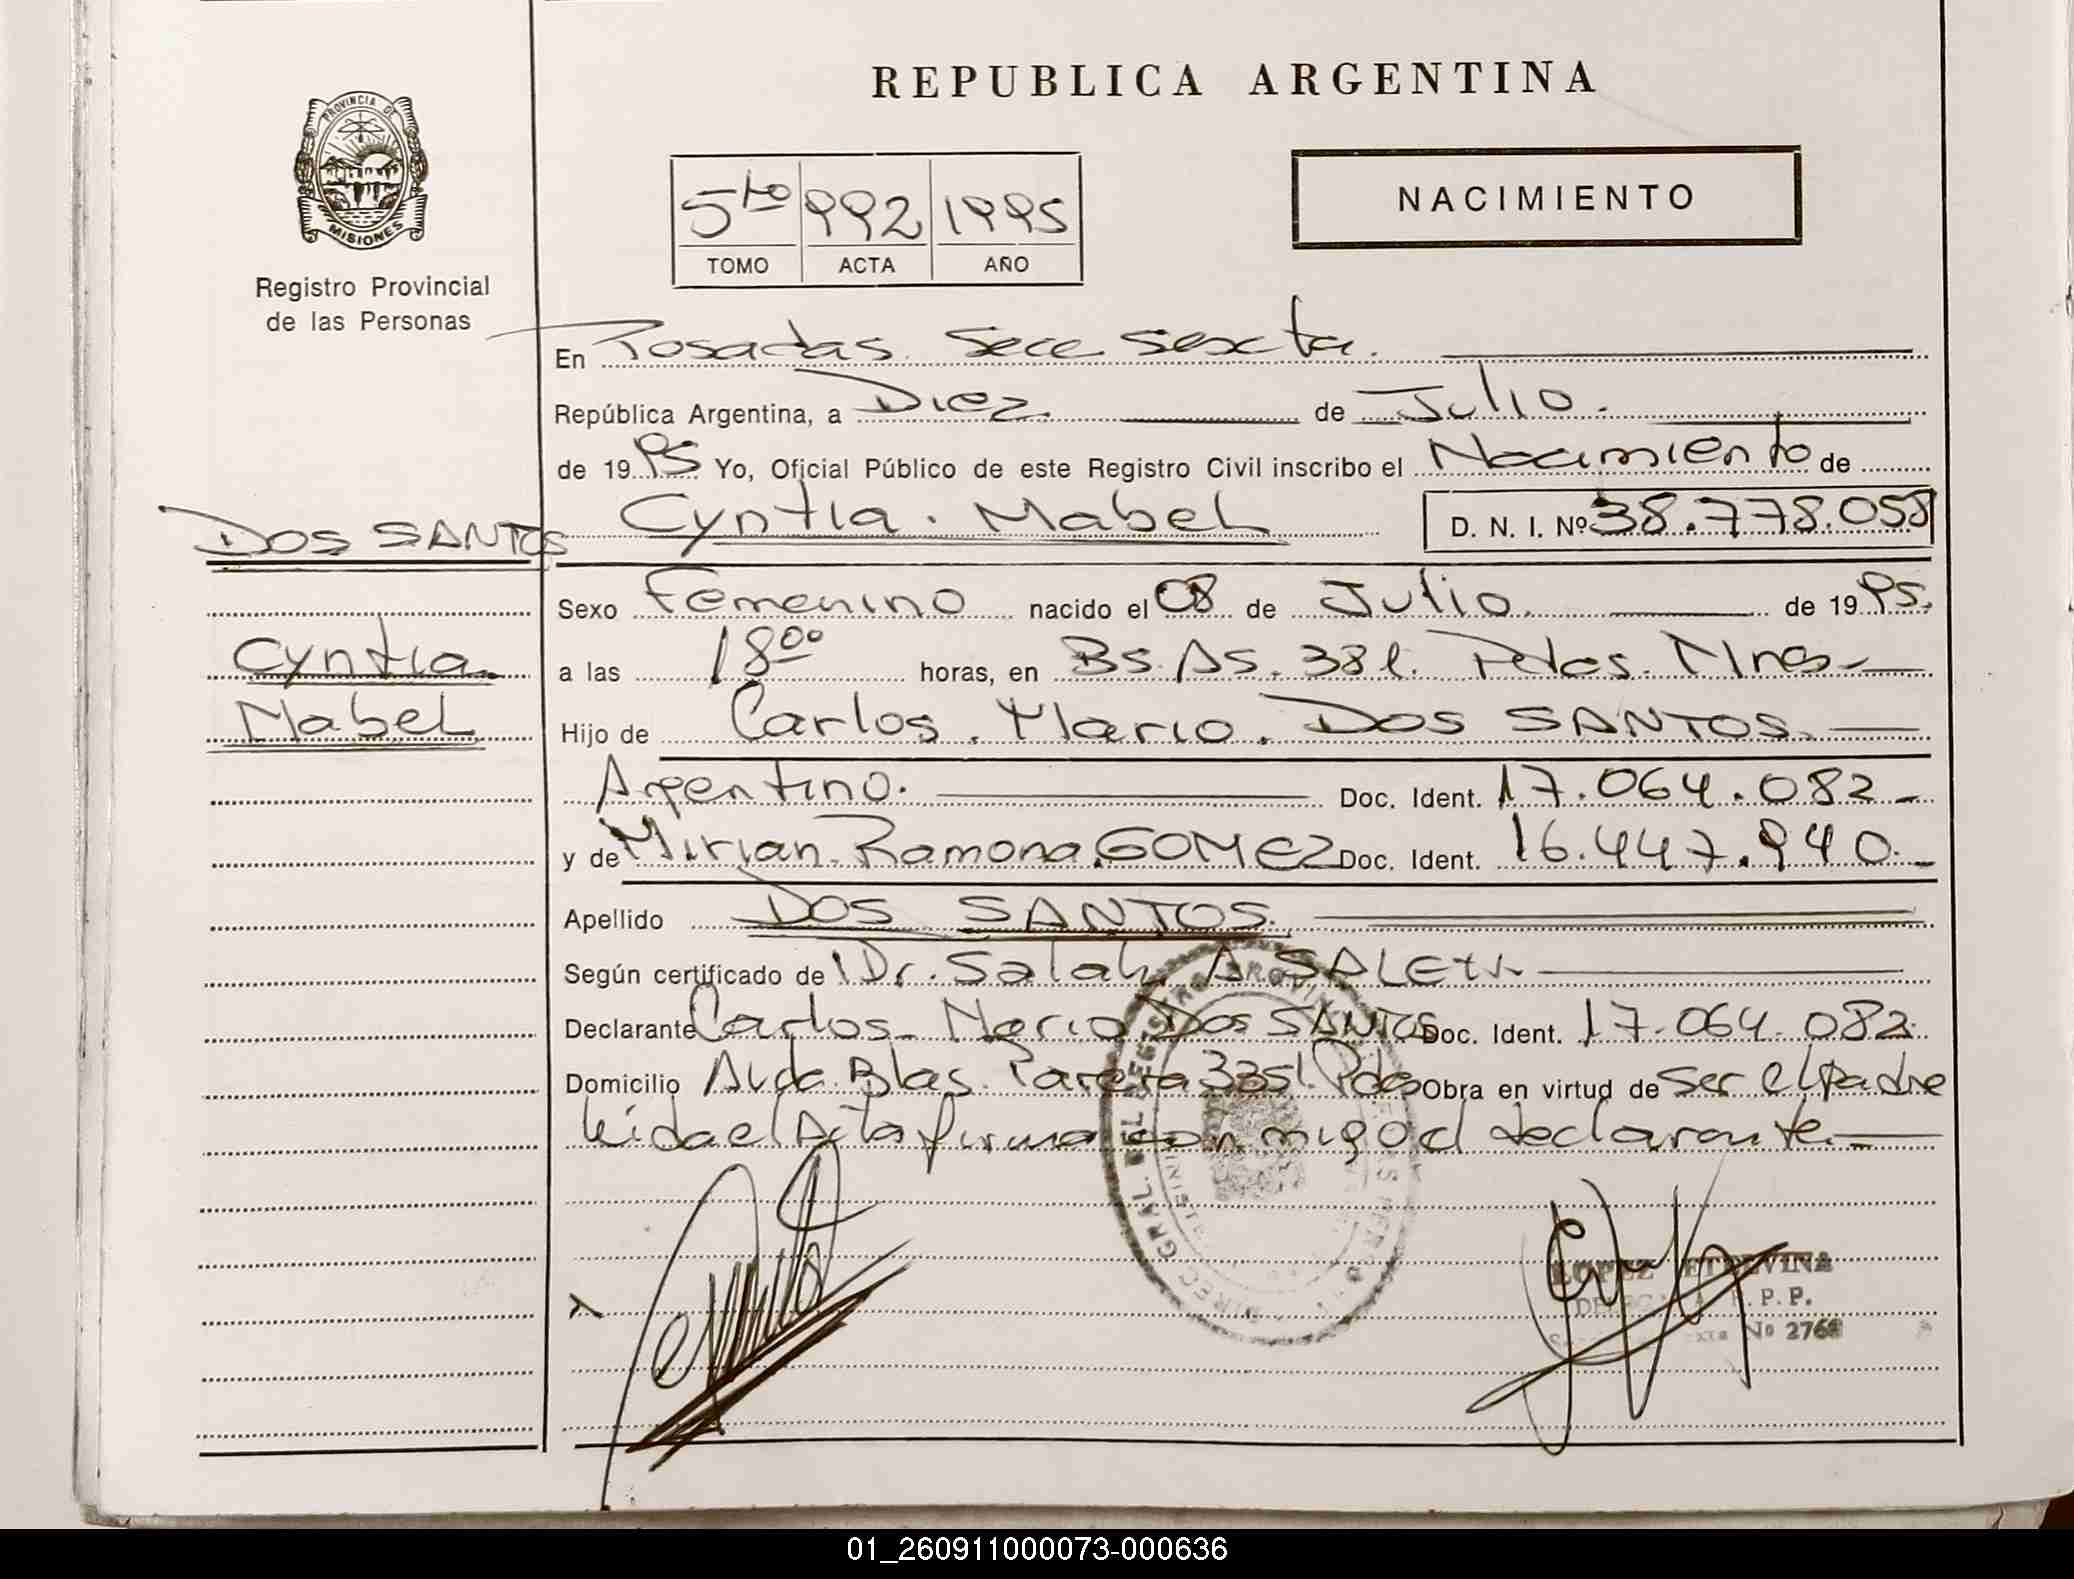 REPUBLICA ARGENTINA
PROVINCIA DE
MISIONES
Registro Provincial
de las Personas
5to 992 1995
TOMO ACTA AÑO
NACIMIENTO
En Posadas Secc Sexta.
República Argentina, a Diez. de Julio.
de 1995 Yo, Oficial Público de este Registro Civil inscribo el Nacimiento de
Cyntia. Mabel D. N. I. Nº 38.778.058
DOS SANTOS
Cyntia
Mabel
Sexo Femenino nacido el 08 de Julio. de 1995.
a las 18oo horas, en Bs. As. 381. Pdas. Mnes.
Hijo de Carlos. Mario. DOS SANTOS.
Argentino. Doc. Ident. 17.064.082
y de Mirian Ramona GOMEZ Doc. Ident. 16.447.940.
Apellido DOS SANTOS.
Según certificado de Dr. Salah A
Declarante Carlos Mario Dos SANTOS Doc. Ident. 17.064.082.
Domicilio Avda. Blas Parera 3351. Pdas Obra en virtud de ser el padre
leida el Acta firma con migo el declarante.
DIREC. GRAL. DEL REGISTRO PROVIN
LOPEZ ETELVINA
R. P. P.
No 2768
01_260911000073-000636